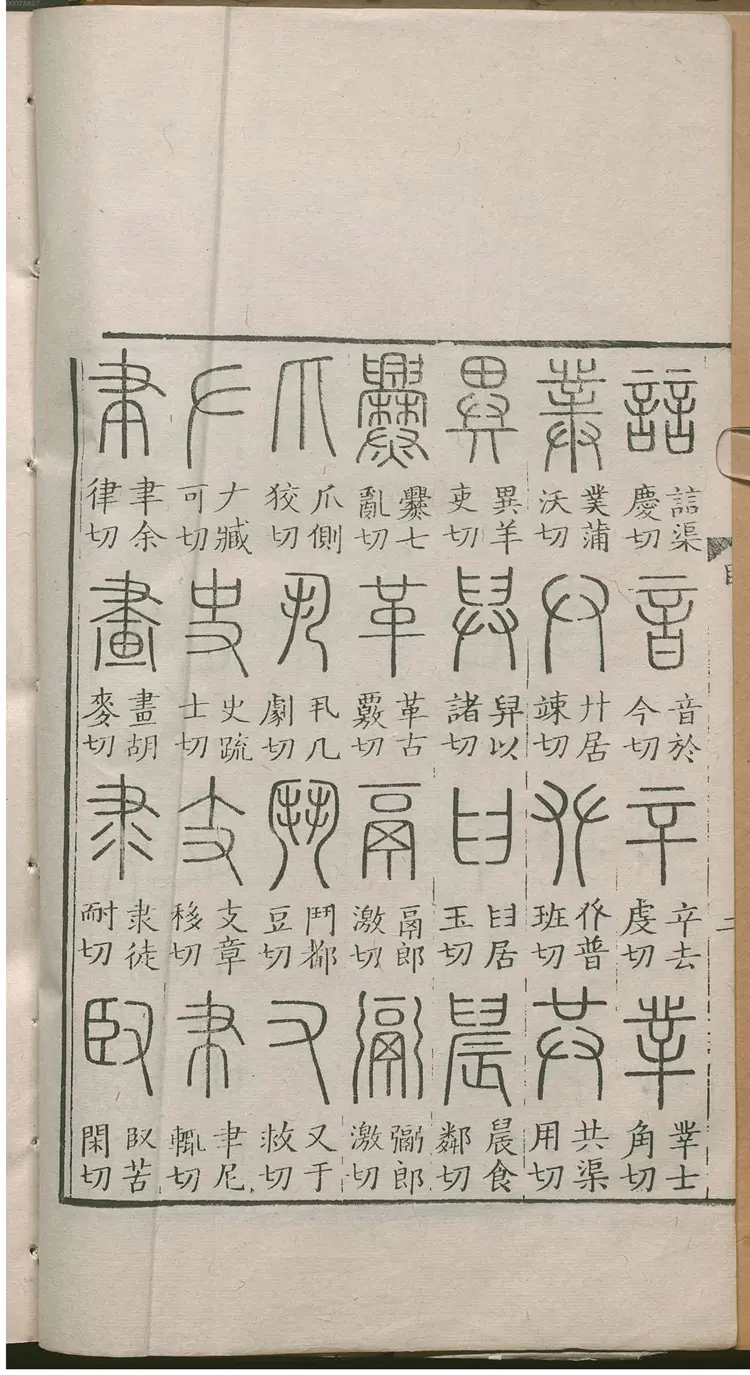 誩 誩渠慶切 音 音於今切 䇂 䇂去虔切 丵 丵士角切
菐 菐蒲沃切 廾 廾居竦切 𠬜 𠬜普班切 共 共渠用切
異 異羊吏切 舁 舁以諸切 𦥑 𦥑居玉切 晨 晨食鄰切
爨 爨七亂切 革 革古覈切 鬲 鬲郎激切 䰜 䰜郎激切
爪 爪側狡切 丮 丮几劇切 鬥 鬥都豆切 又 又于救切
𠂇 𠂇臧可切 史 史疏士切 支 支章移切 𦘒 𦘒尼輒切
聿 聿余律切 畫 畫胡麥切 隶 隶徒耐切 臤 臤苦閑切